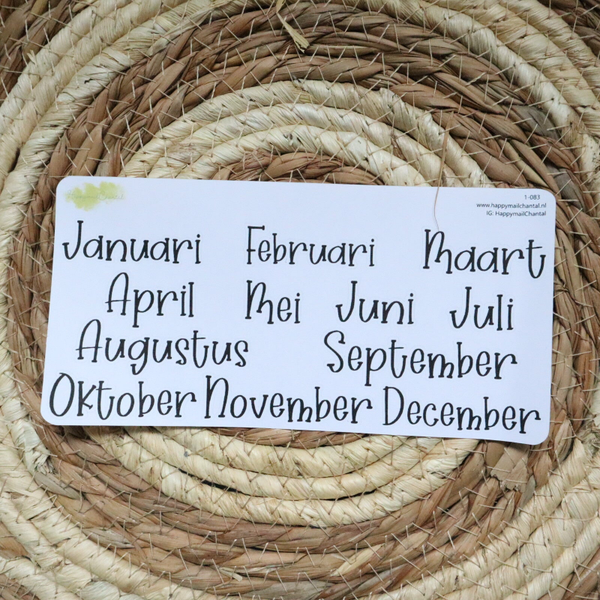 1-083
www.happymailchantal.nl
IG: HappymailChantal
Januari Februari Maart
April Mei Juni Juli
Augustus September
Oktober November December